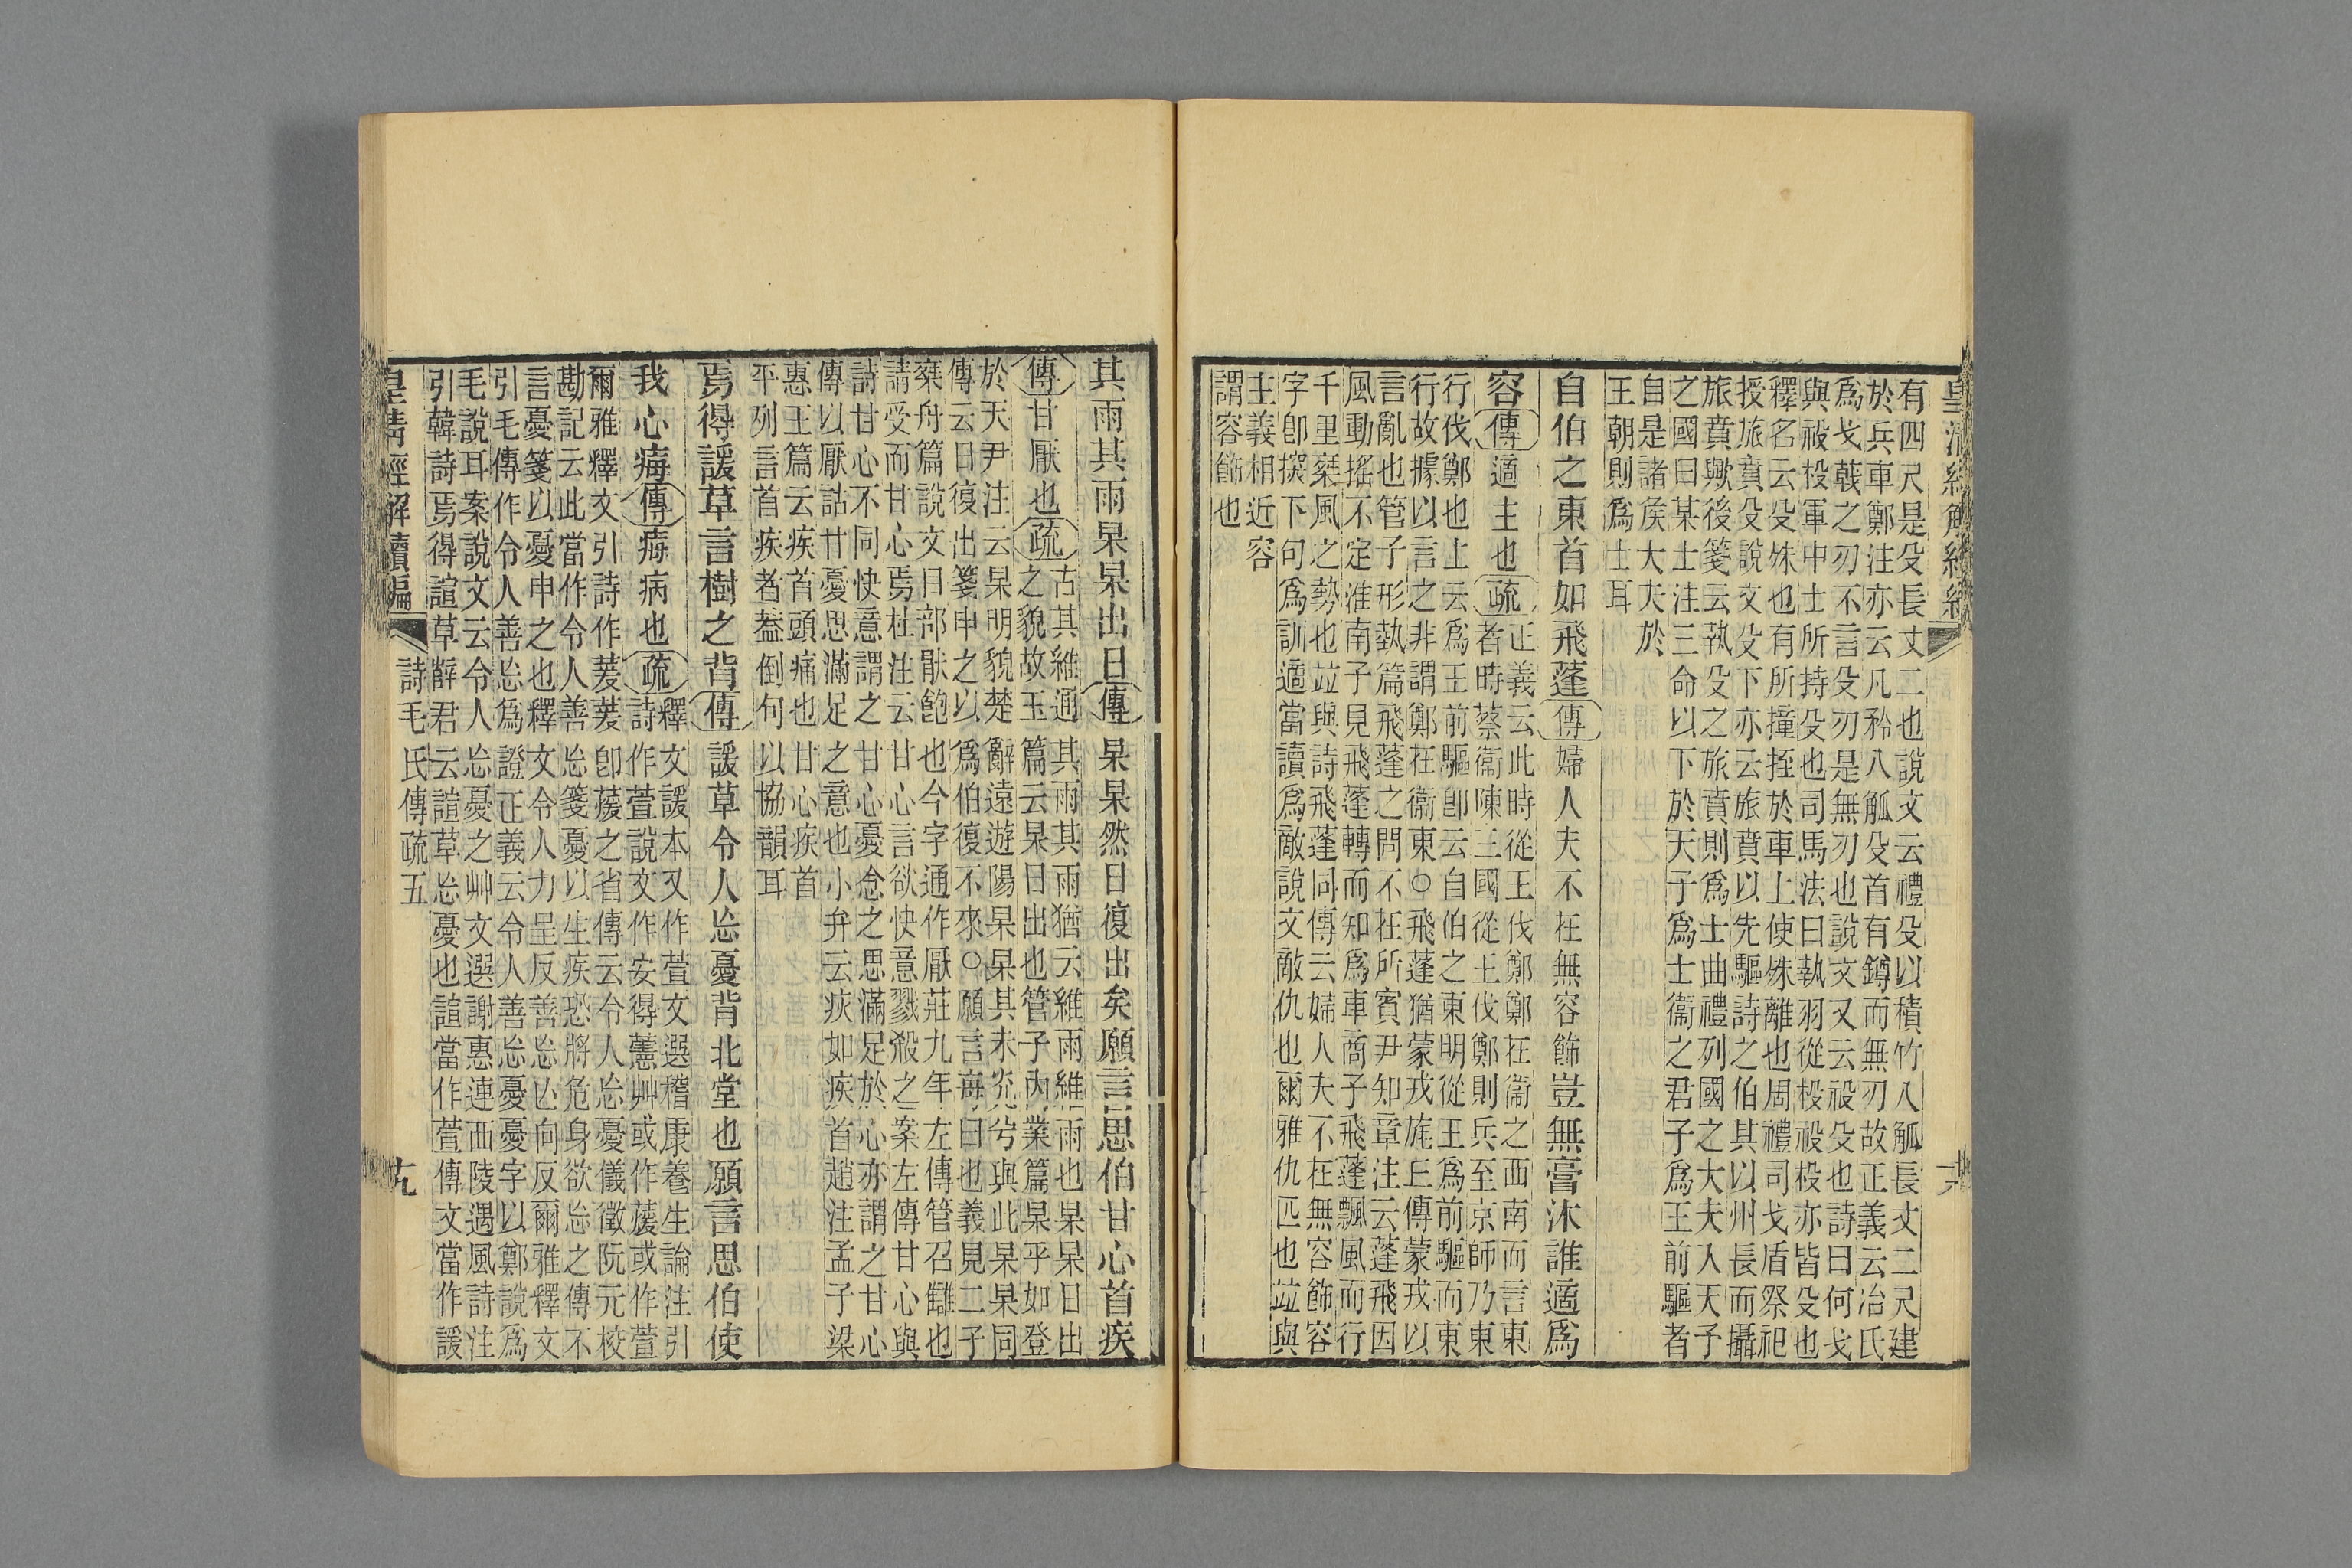 有四尺是殳長丈二也說文云禮殳以積竹八觚長丈二尺建
於兵車鄭注亦云凡矜八觚殳首有鐏而無刃故正義云冶氏
爲戈戟之刃不言殳刃是無刃也說文又云祋殳也詩曰何戈
與祋杸軍中士所持殳也司馬法曰執羽從杸祋杸亦皆殳也
釋名云殳殊也有所撞挃於車上使殊離也周禮司戈盾祭祀
授旅賁殳說文殳下亦云旅賁以先驅詩之伯其以州長而攝
旅賁歟後箋云執殳之旅賁則爲士曲禮列國之大夫入天子
之國曰某士注三命以下於天子爲士衞之君子爲王前驅者
自是諸侯大夫於
王朝則爲士耳
自伯之東首如飛蓬傳婦人夫不在無容飾豈無膏沐誰適爲
容傳適主也疏正義云此時從王伐鄭鄭在衞之西南而言東
者時蔡衞陳三國從王伐鄭則兵至京師乃東
行伐鄭也上云爲王前驅卽云自伯之東明從王爲前驅而東
行故據以言之非謂鄭在衞東○飛蓬猶蒙戎旄丘傳蒙戎以
言亂也管子形埶篇飛蓬之問不在所賓尹知章注云蓬飛因
風動搖不定淮南子見飛蓬轉而知爲車商子飛蓬飄風而行
千里椉風之勢也竝與詩飛蓬同傳云婦人夫不在無容飾容
字卽探下句爲訓適當讀爲敵說文敵仇也爾雅仇匹也竝與
主義相近容
謂容飾也
其雨其雨杲杲出日傳杲杲然日復出矣願言思伯甘心首疾
傳甘厭也疏古其維通其雨其雨猶云維雨維雨也杲杲日出
之貌故玉篇云杲日出也管子內業篇杲乎如登
於天尹注云杲明貌楚辭遠遊陽杲杲其未光兮與此杲杲同
傳云日復出箋申之以爲伯復不來○願言每曰也義見二子
椉舟篇說文曰部猒飽也今字通作厭莊九年左傳管召讎也
請受而甘心焉杜注云甘心言欲快意戮殺之案左傳甘心與
詩甘心不同快意謂之甘心憂念之思滿足於心亦謂之甘心
傳以厭詁甘憂思滿足之意也小弁云疢如疾首趙注孟子梁
惠王篇云疾首頭痛也甘心疾首
平列言首疾者葢倒句以協韻耳
焉得諼草言樹之背傳諼草令人忘憂背北堂也願言思伯使
我心痗傳痗病也疏釋文諼本又作萱文選稽康養生論注引
詩作萱說文作安得藼艸或作蕿或作萱
爾雅釋文引詩作萲萲卽蕿之省傳云令人忘憂儀徵阮元校
勘記云此當作令人善忘箋憂以生疾恐將危身欲忘之傳不
言憂箋以憂申之也釋文令人力呈反善忘亡向反爾雅釋文
引毛傳作令人善忘爲證正義云令人善忘憂憂字以鄭說爲
毛說耳案說文云令人忘憂之艸文選謝惠連西陵遇風詩注
引韓詩焉得諠草薛君云諠草忘憂也諠當作萱傳文當作諼
皇清經解續編 詩毛氏傳疏五